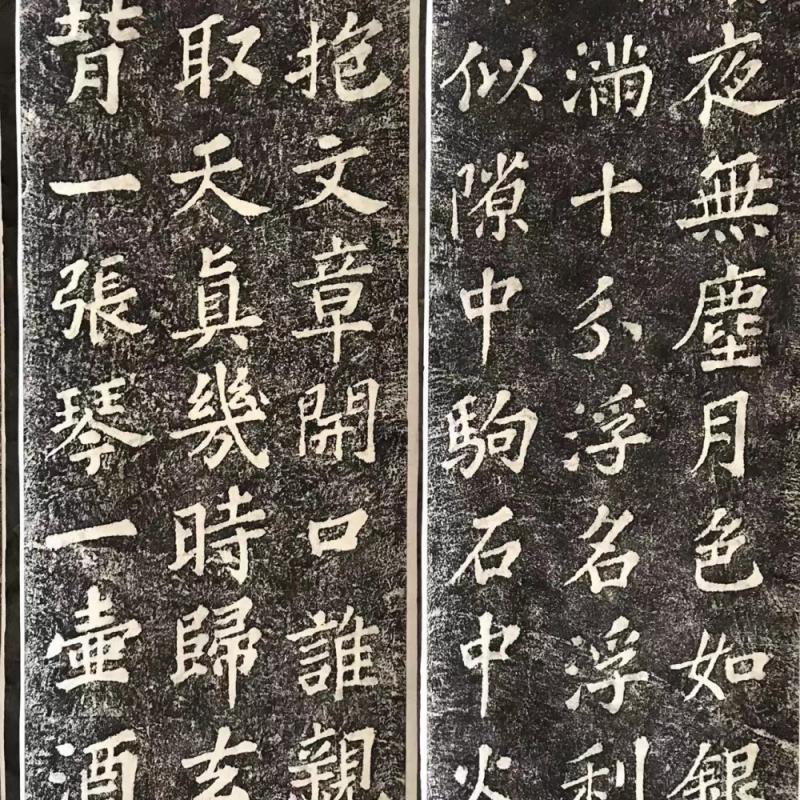 夜無塵月色如銀
滿十分浮名浮利
似隙中駒石中火
抱文章開口誰親
取天真幾時歸去
背一張琴一壺酒